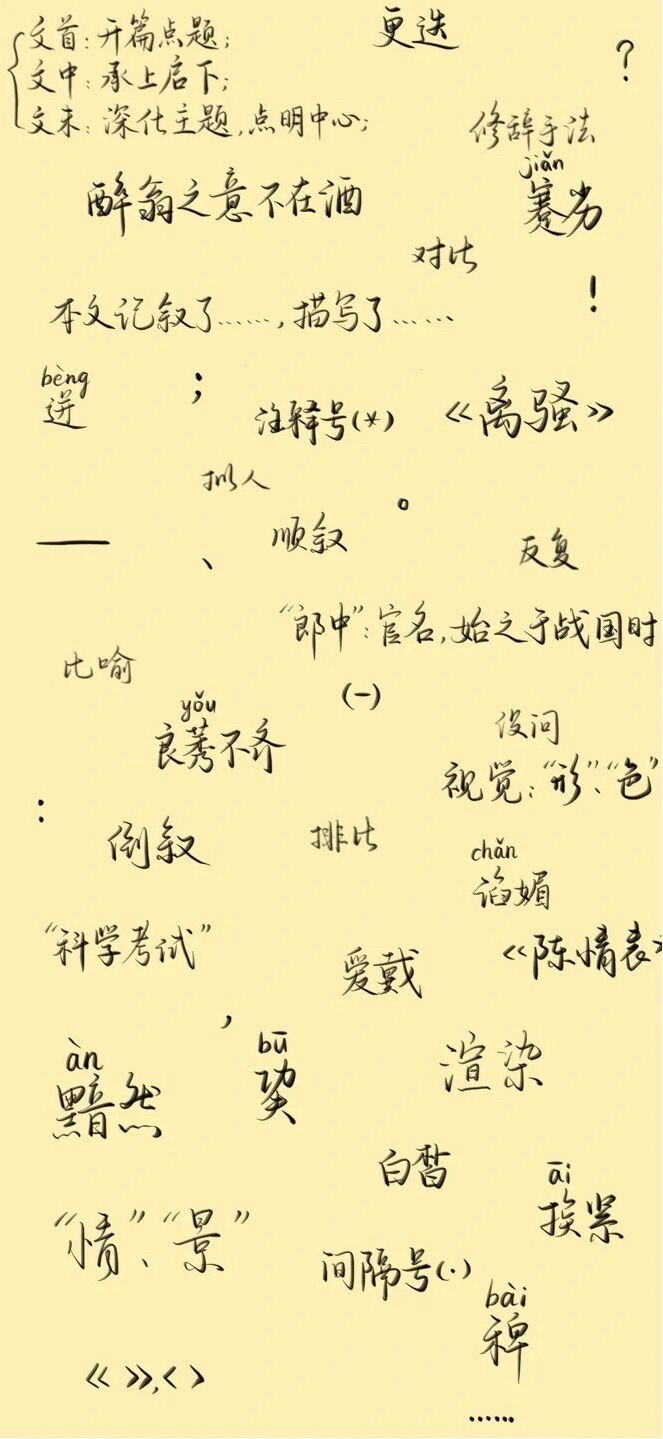 文首：开篇点题；
更迭
文中：承上启下；
?
文末：深化主题，点明中心；
修辞手法
jiǎn
醉翁之意不在酒
蹇劣
对比
!
本文记叙了……，描写了……
bèng
迸
；
注释号(*)
《离骚》
拟人
。
——
顺叙
反复
、
“郎中”：官名，始之于战国时
比喻
(一)
yǒu
良莠不齐
设问
视觉：“形”、“色”
：
倒叙
排比
chǎn
谄媚
“科学考试”
爱戴
《陈情表》
，
àn
黯然
bū
渲染
白皙
āi
挨紧
“情”、“景”
间隔号(·)
bài
稗
《》,〈〉
……